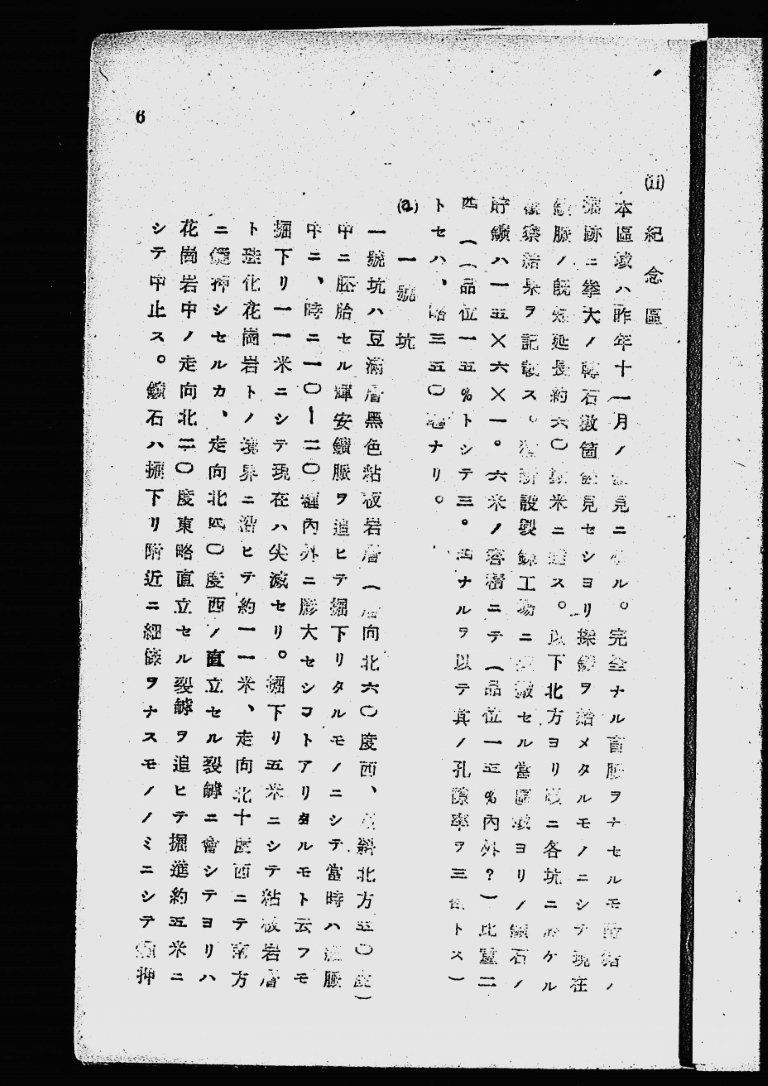 6
(ii) 紀念區
本區域ハ昨年十一月ノ見ニル。完全ナル盲脈ヲナセルモノ
掘跡ニ拳大ノ轉石數箇見セシヨリ探鑛ヲ始メタルモノニシテ現在
鑛脈ノ既知延長約六〇米ニ達ス。以下北方ヨリ順ニ各坑ニ於ケル
結果ヲ記載ス。設製錬工場ニ搬セル當區域ヨリノ鑛石ノ
貯鑛ハ一五×六×一。六米ノ容積ニテ(品位一五%內外?)比重二
四((品位一五%トシテ三。四ナルヲ以テ真ノ孔隙率ヲ三トス)
トセハ、略三五〇ナリ。
(a) 一號坑
一號坑ハ豆滿層黑色粘板岩層(向北六〇度西、傾斜北方五〇度)
中ニ胚胎セル輝安鑛脈ヲ追ヒテ掘下リタルモノニシテ當時ハ脈
巾ニ、時ニ一〇—二〇糎內外ニ膨大セシコトアリタルモト云フモ
掘下リ一一米ニシテ現在ハ尖滅セリ。掘下リ五米ニシテ粘板岩層
ト珪化花崗岩トノ境界ニ沿ヒテ約一一米、走向北十度西ニテ南方
ニ鑓押シセルカ、走向北四〇度西ノ直立セル裂罅ニ會シテヨリハ
花崗岩中ノ走向北二〇度東略直立セル裂罅ヲ追ヒテ掘進約五米ニ
シテ中止ス。鑛石ハ掘下リ附近ニ經條ヲナスモノノミニシテ押